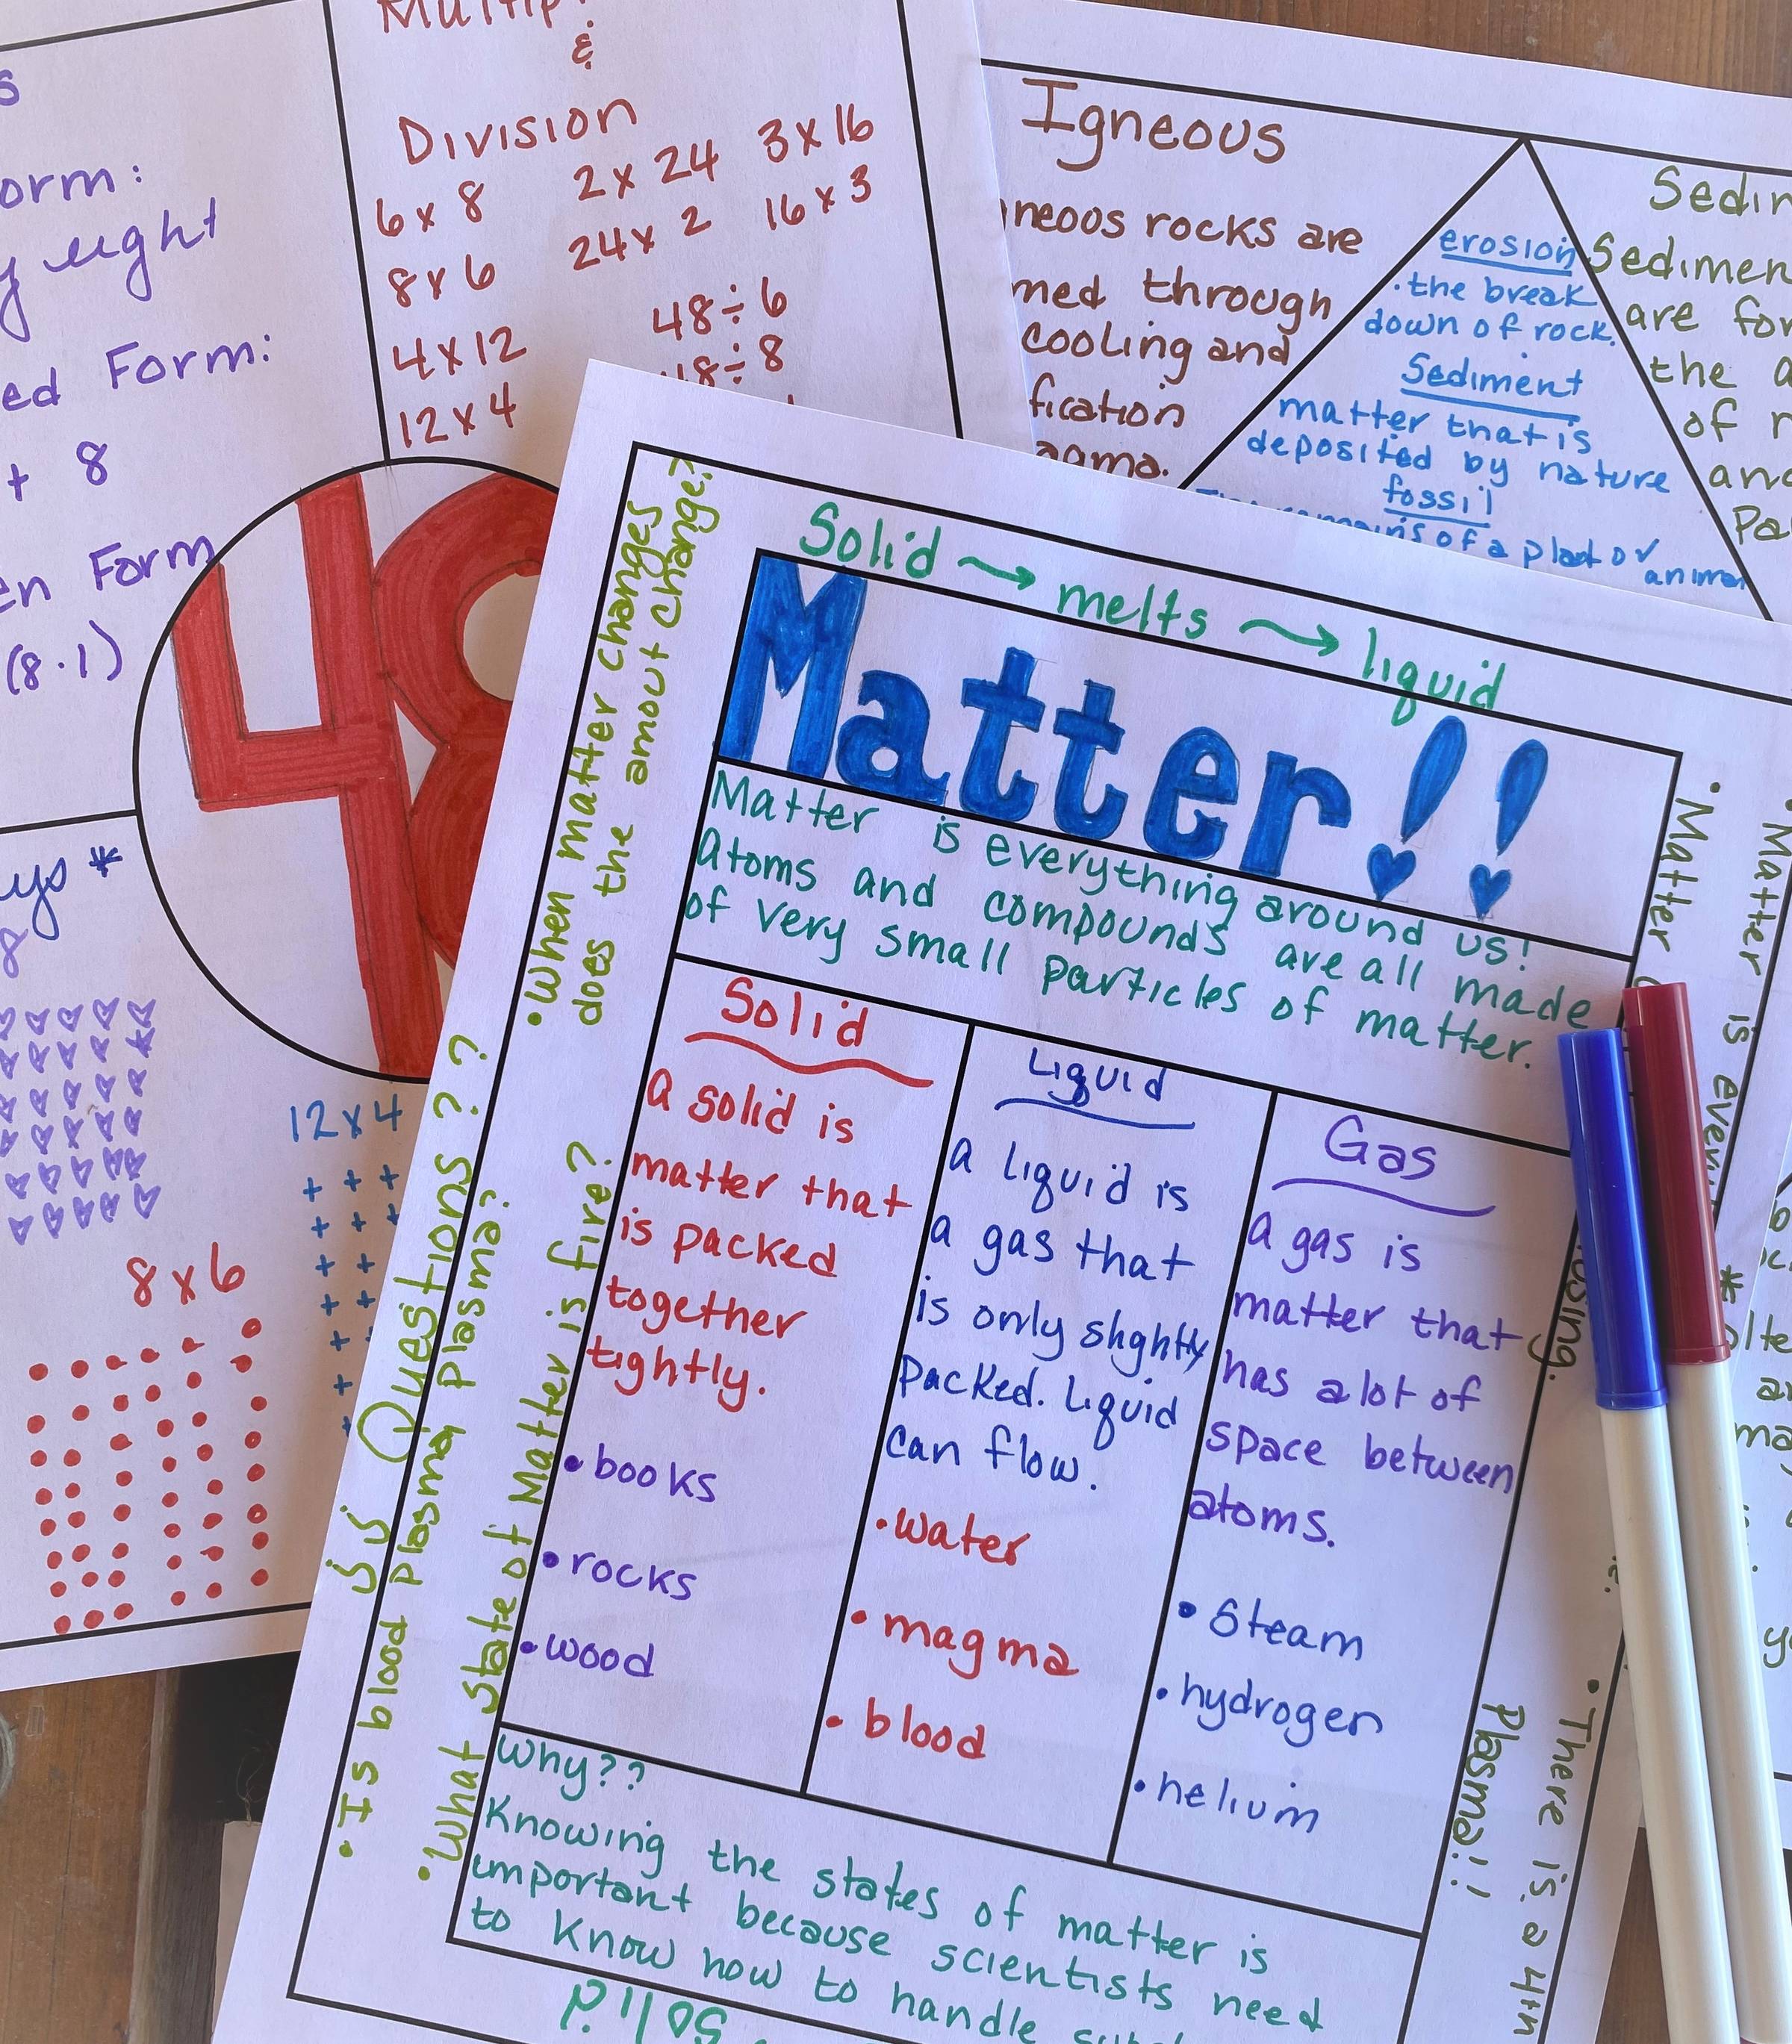 s
orm:
y eight
ed Form:
+ 8
en Form
(8·1)
&
Division
6 x 8
8 x 6
4 x 12
12 x 4
2 x 24
24 x 2
3 x 16
16 x 3
48 ÷ 6
48 ÷ 8
48
ys *
8
12 x 4
8 x 6
Igneous
neoos rocks are
med through
cooling and
fication
agma.
erosion
·the break
down of rock.
Sediment
matter that is
deposited by nature
fossil
remains of a plant or
animal
Sedim
Sedimen
are for
the a
of r
and
Pa
Solid → melts → liquid
Matter!!
Matter is everything around us!
Atoms and compounds are all made
of very small particles of matter.
Solid
a solid is
matter that
is packed
together
tightly.
• books
• rocks
• wood
Liquid
a liquid is
a gas that
is only slightly
packed. Liquid
can flow.
• water
• magma
• blood
Gas
a gas is
matter that
has a lot of
space between
atoms.
• Steam
• hydrogen
• helium
Why??
Knowing the states of matter is
important because scientists need
to know how to handle
Solid
¿¿ Questions??
• Is blood plasma plasma?
• What State of Matter is fire?
• When matter changes
does the amout change?
• Matter is
• Matter
• There is a 4th
Plasma!!